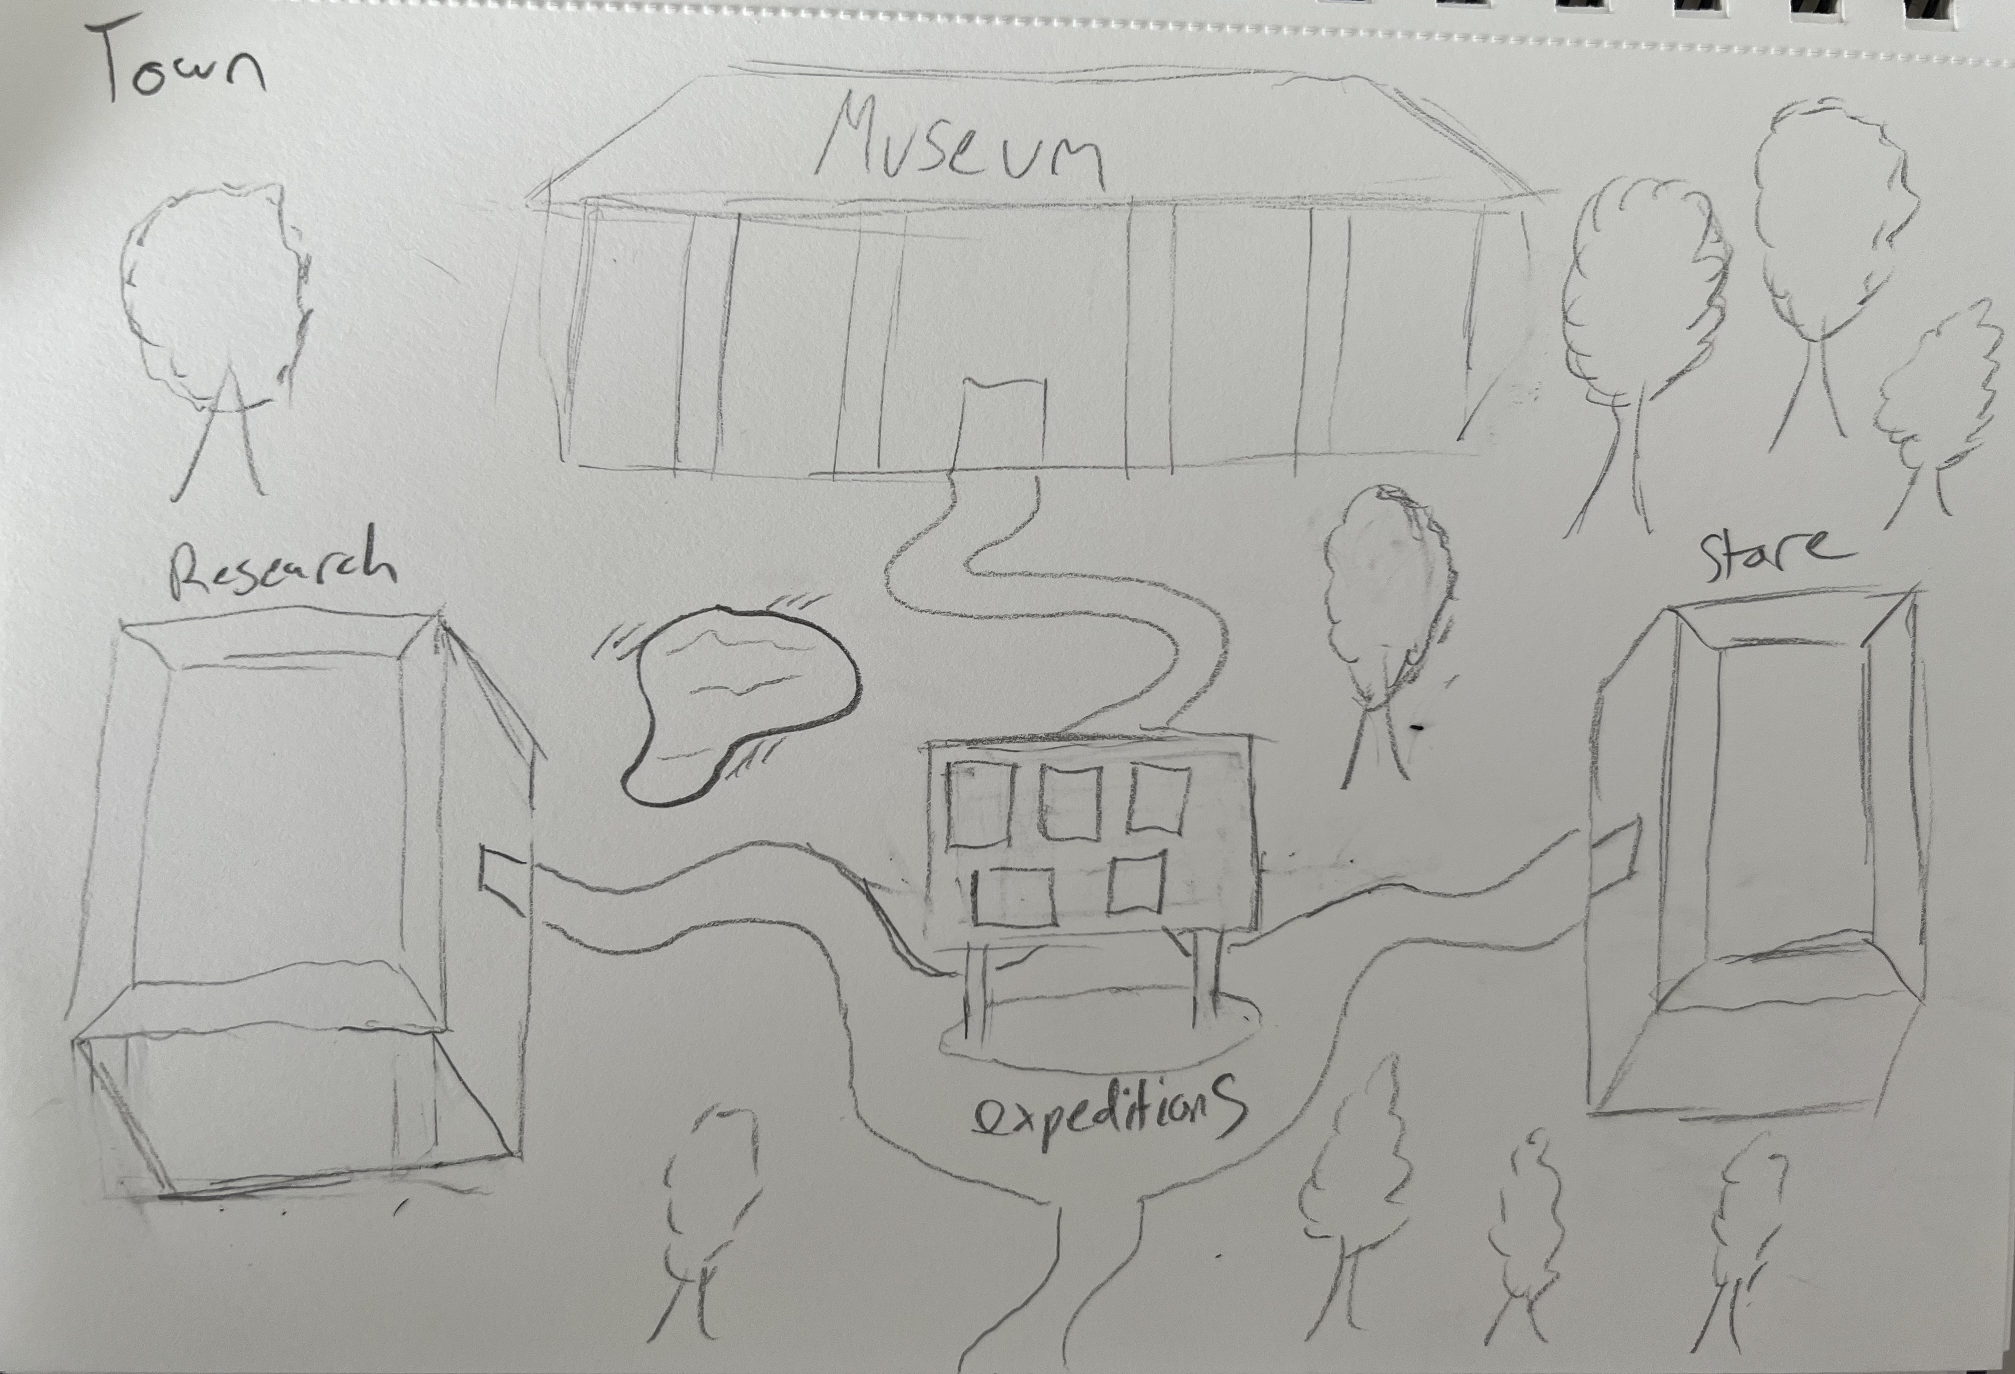 Town
Museum
Research
Store
expeditions